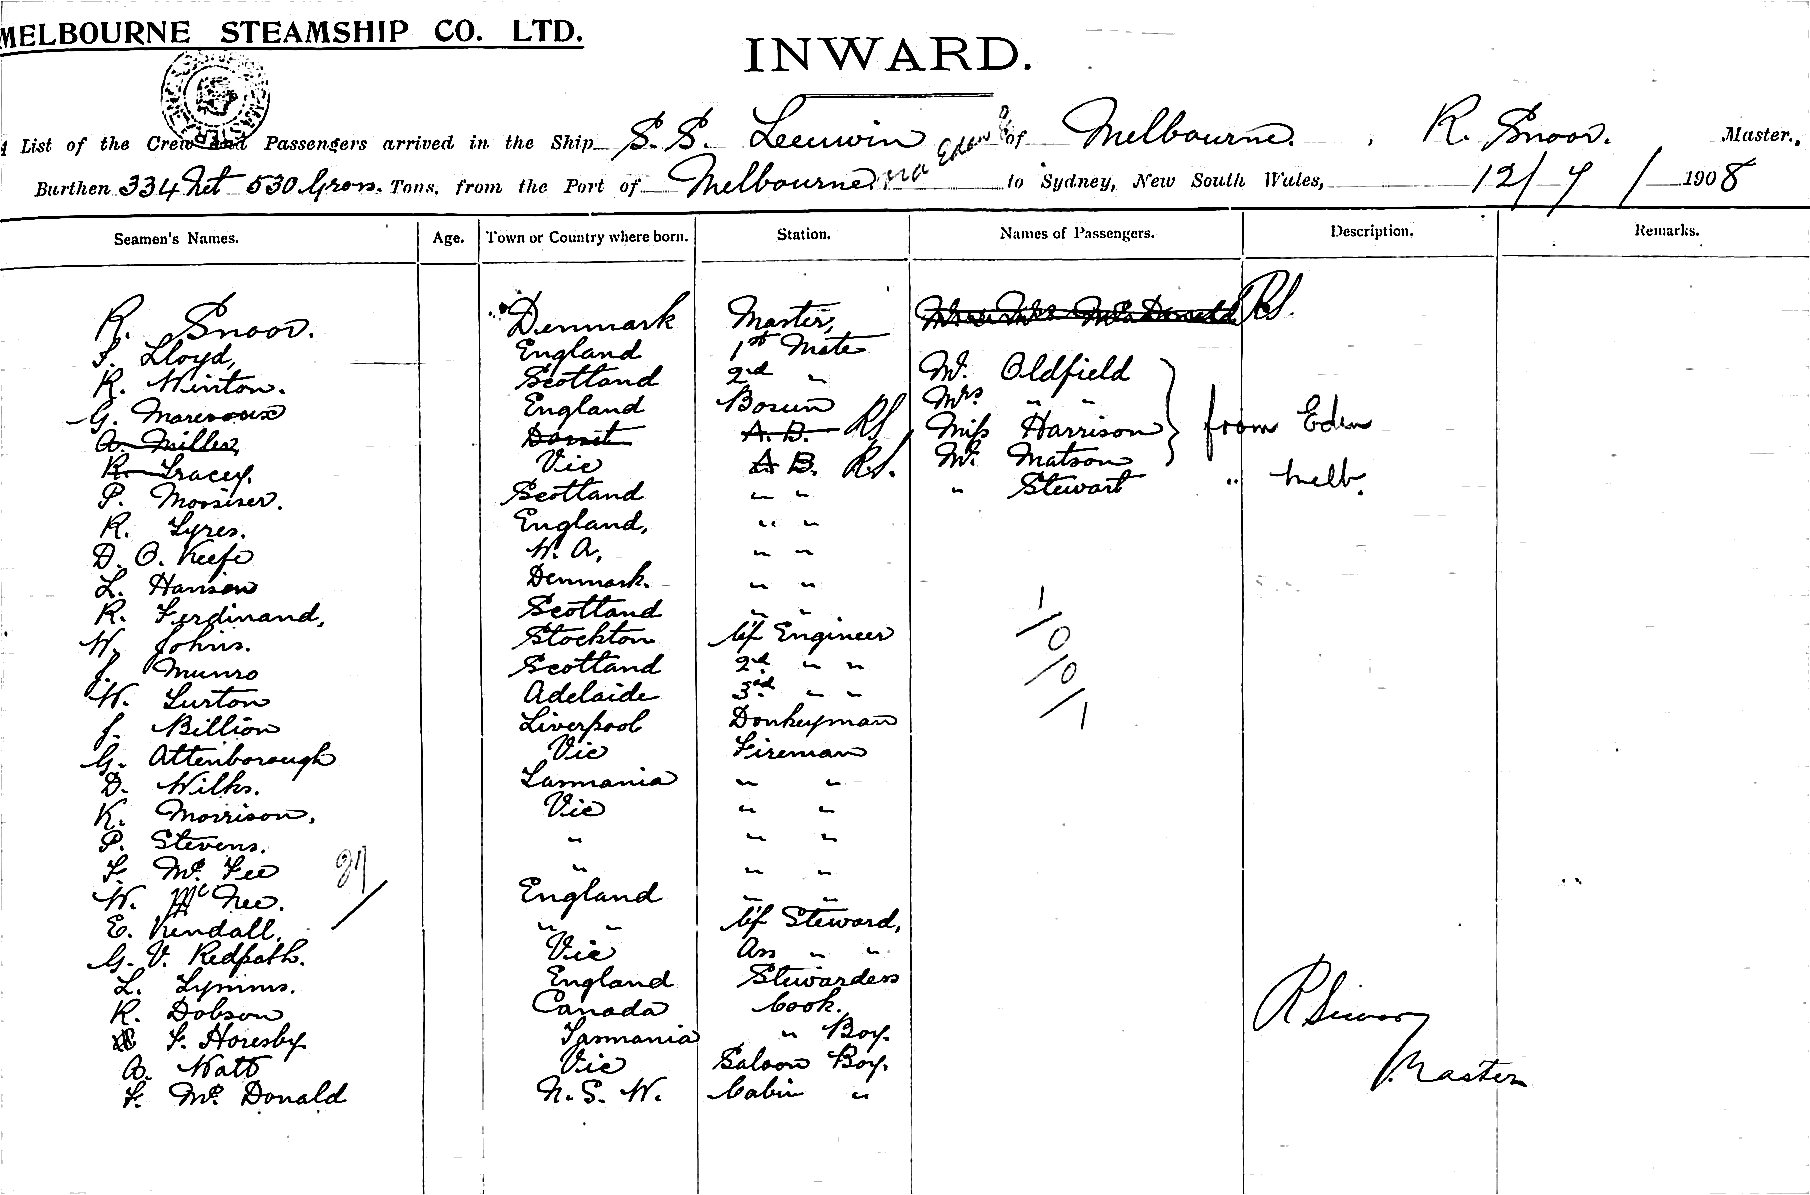 MELBOURNE STEAMSHIP CO. LTD.
INWARD.
A List of the Crew and Passengers arrived in the Ship S.S. Leeuwin of Melbourne. , R. Snoor. Master.,
Burthen 334 Net 530 Gross. Tons, from the Port of Melbourne via Eden to Sydney, New South Wales, 12/7/1908
Seamen's Names. Age. Town or Country where born. Station. Names of Passengers. Description. Remarks.
R. Snoor. Denmark Master, RS.
J. Lloyd, England 1st Mate
R. Winton. Scotland 2nd " Mr. Oldfield
G. England Bosun Mrs " "
A. Miller, Dorset A.B. RS Miss Harrison from Eden
R. Tracey. Vic A.B. RS. Mr. Matson
P. Scotland " " " Stewart " Melb.
R. Syres. England, " "
D. O. Keefe W.A, " "
L. Hansen Denmark. " "
R. Ferdinand, Scotland " "
W. Johns. Stockton Cf Engineer
J. Munro Scotland 2nd " "
W. Lurton Adelaide 3rd " "
J. Billion Liverpool Donkeyman
G. Attenborough Vic Fireman
D. Wilks. Tasmania " "
K. Morrison, Vic " "
P. Stevens. " " "
F. Mc Fee " " "
W. McNee. England " "
E. Kendall. " " Cf Steward,
G. V. Redpath. Vic Ass " "
L. Lymms. England Stewardess
R. Dobson Canada Cook.
F. Horesby Tasmania " Boy.
A. Watt Vic Saloon Boy.
F. Mc Donald N.S.W. Cabin "
1/0/0/1
R Snoor
Master